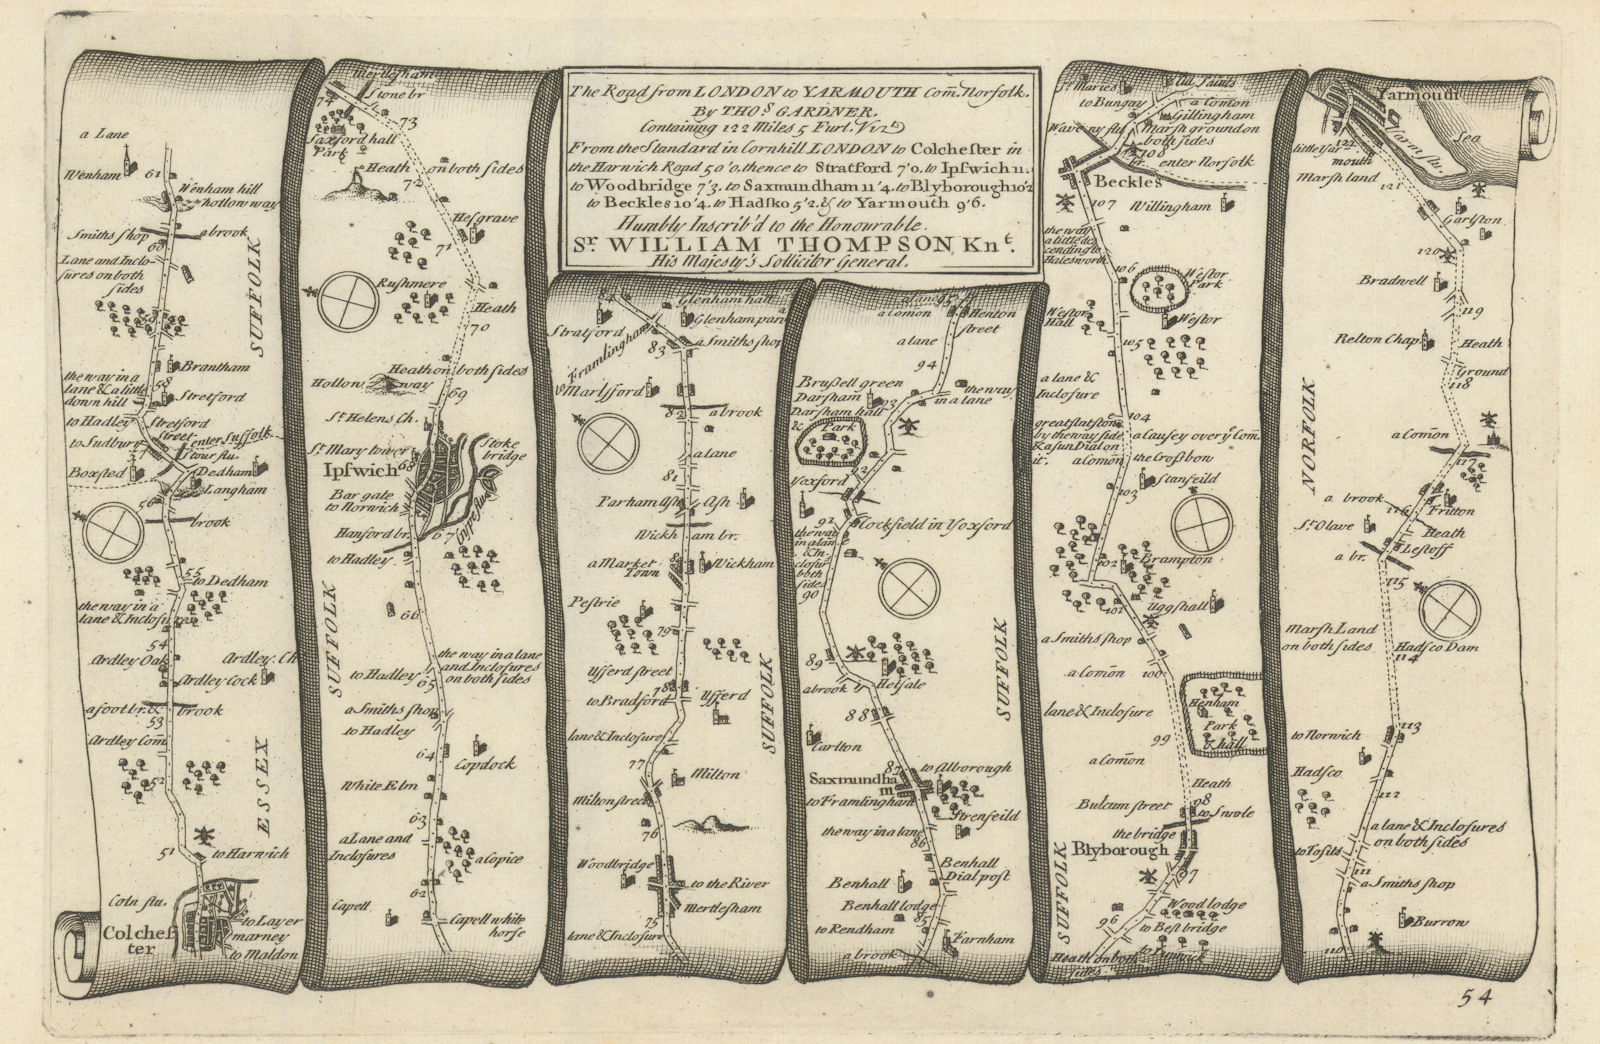 The Road from LONDON to YARMOUTH Com. Norfolk.
By THOs. GARDNER.
Containing 122 Miles 5 Furl. Vizt
From the Standard in Cornhill LONDON to Colchester in
the Harwich Road 50'0. thence to Stratford 7'0. to Ipswich 11.
to Woodbridge 7'3. to Saxmundham 11'4. to Blyborough 10'2
to Beckles 10'4. to Hadsko 5'2. & to Yarmouth 9'6.
Humbly Inscrib'd to the Honourable.
Sr. WILLIAM THOMPSON, Knt.
His Majesty's Sollicitor General.
a Lane
Wenham
61
Wenham hill
hollow way
Smiths shop
a brook
60
Lane and Inclo-
sures on both
sides
SUFFOLK
Brantham
the way in a
lane & a little
down hill
58
Stretford
to Hadley
Stretford
street
to Sudbury
enter Suffolk
Stour flu.
57
Boxsted
Dedham
Langham
56
brook
55
to Dedham
the way in a
lane & Inclosures
54
Ardley Oak
Ardley. Ch
Ardley Cock
a foot br. &
brook
53
Ardley Com
52
ESSEX
51
to Harwich
Coln flu.
Colches
ter
to Layer
marney
to Maldon
Mertlesham
74
Stone br
73
Saxford hall
Park
a Heath
on both sides
72
Hesgrave
71
Rushmere
Heath
70
Heath on both sides
Hollow way
69
St. Helens Ch.
St. Mary tower
68
Stoke
bridge
Ipswich
Bar gate
to Norwich
Hanford br.
67
to Hadley
66
SUFFOLK
the way in a lane
and Inclosures
on both sides
to Hadley
65
a Smiths shop
to Hadley
64
Copdock
White Elm
63
a Lane and
Inclosures
a Copice
62
Capell
Capell white
horse
Glenham hall
Stratford
Glenham parv
a Smiths shop
83
to Framlingham
Marlsford
82
a brook
a lane
81
Parham Ash
Ash
Wickham br.
a Market
Town
80
Wickham
Pestrie
79
Ufferd street
78
to Bradford
Ufferd
SUFFOLK
lane & Inclosure
77
Milton
Milton street
76
Woodbridge
to the River
Mertlesham
75
lane & Inclosure
a lane
95
a Comon
Henton
street
a lane
94
Brussell green
Darsham
93
the way
in a lane
Darsham hall
&
Park
92
Yoxford
91
Cockfield in Yoxford
the way
in a lane
& In-
closur
both
sides
90
SUFFOLK
89
Helsale
a brook
88
Carlton
87
to Alborough
Saxmundha
m
to Framlingham
Strenfeild
the way in a lane
86
Benhall
Dial post
Benhall
Benhall lodge
85
to Rendham
Farnham
a brook
St. Maries
All Saints
to Bungay
a Comon
Gillingham
Waveny flu.
Marsh ground on
both sides
108
br.
enter Norfolk
Beckles
107
Willingham
the way
a little des
cending to
Halesworth
106
Westor
Park
Westor
Hall
Westor
105
a lane &
Inclosure
104
great flat stone
by the way side
& a sun Dial on
it.
a Causey over ye. Com.
a Comon
the Crossbow
103
Stanfeild
102
Brampton
101
Uggshall
a Smiths shop
a Comon
100
lane & Inclosure
Henham
Park
& hall
99
a Comon
Heath
98
Bulcum street
to Swole
the bridge
Blyborough
97
SUFFOLK
96
Wood lodge
to Best bridge
to Dunwich
Heath on both
sides
Yarmouth
Yarm flu.
Sea
122
little Yar
mouth
Marsh land
121
Garlston
120
Bradwell
119
Relton Chap.
Heath
Ground
118
NORFOLK
a Comon
117
a brook
116
Fritton
St. Olave
Heath
Lestoff
a br.
115
Marsh Land
on both sides
Hadsco Dam
114
113
to Norwich
Hadsco
112
a lane & Inclosures
on both sides
to Tofits
111
a Smiths shop
Burrow
110
54